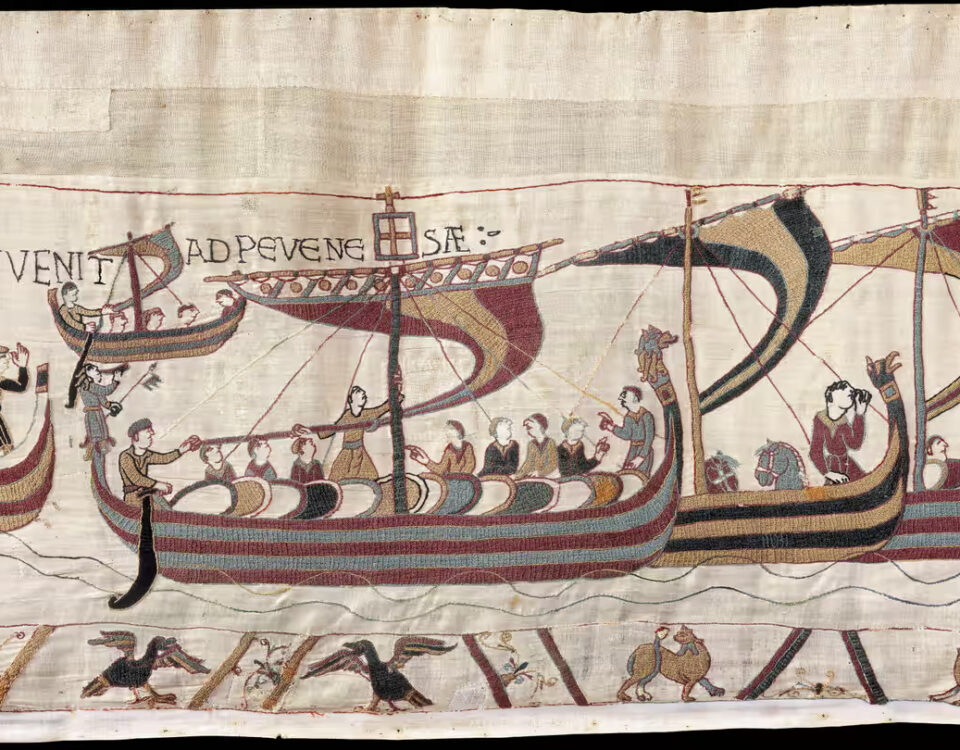 VENIT AD PEVENE SÆ:·